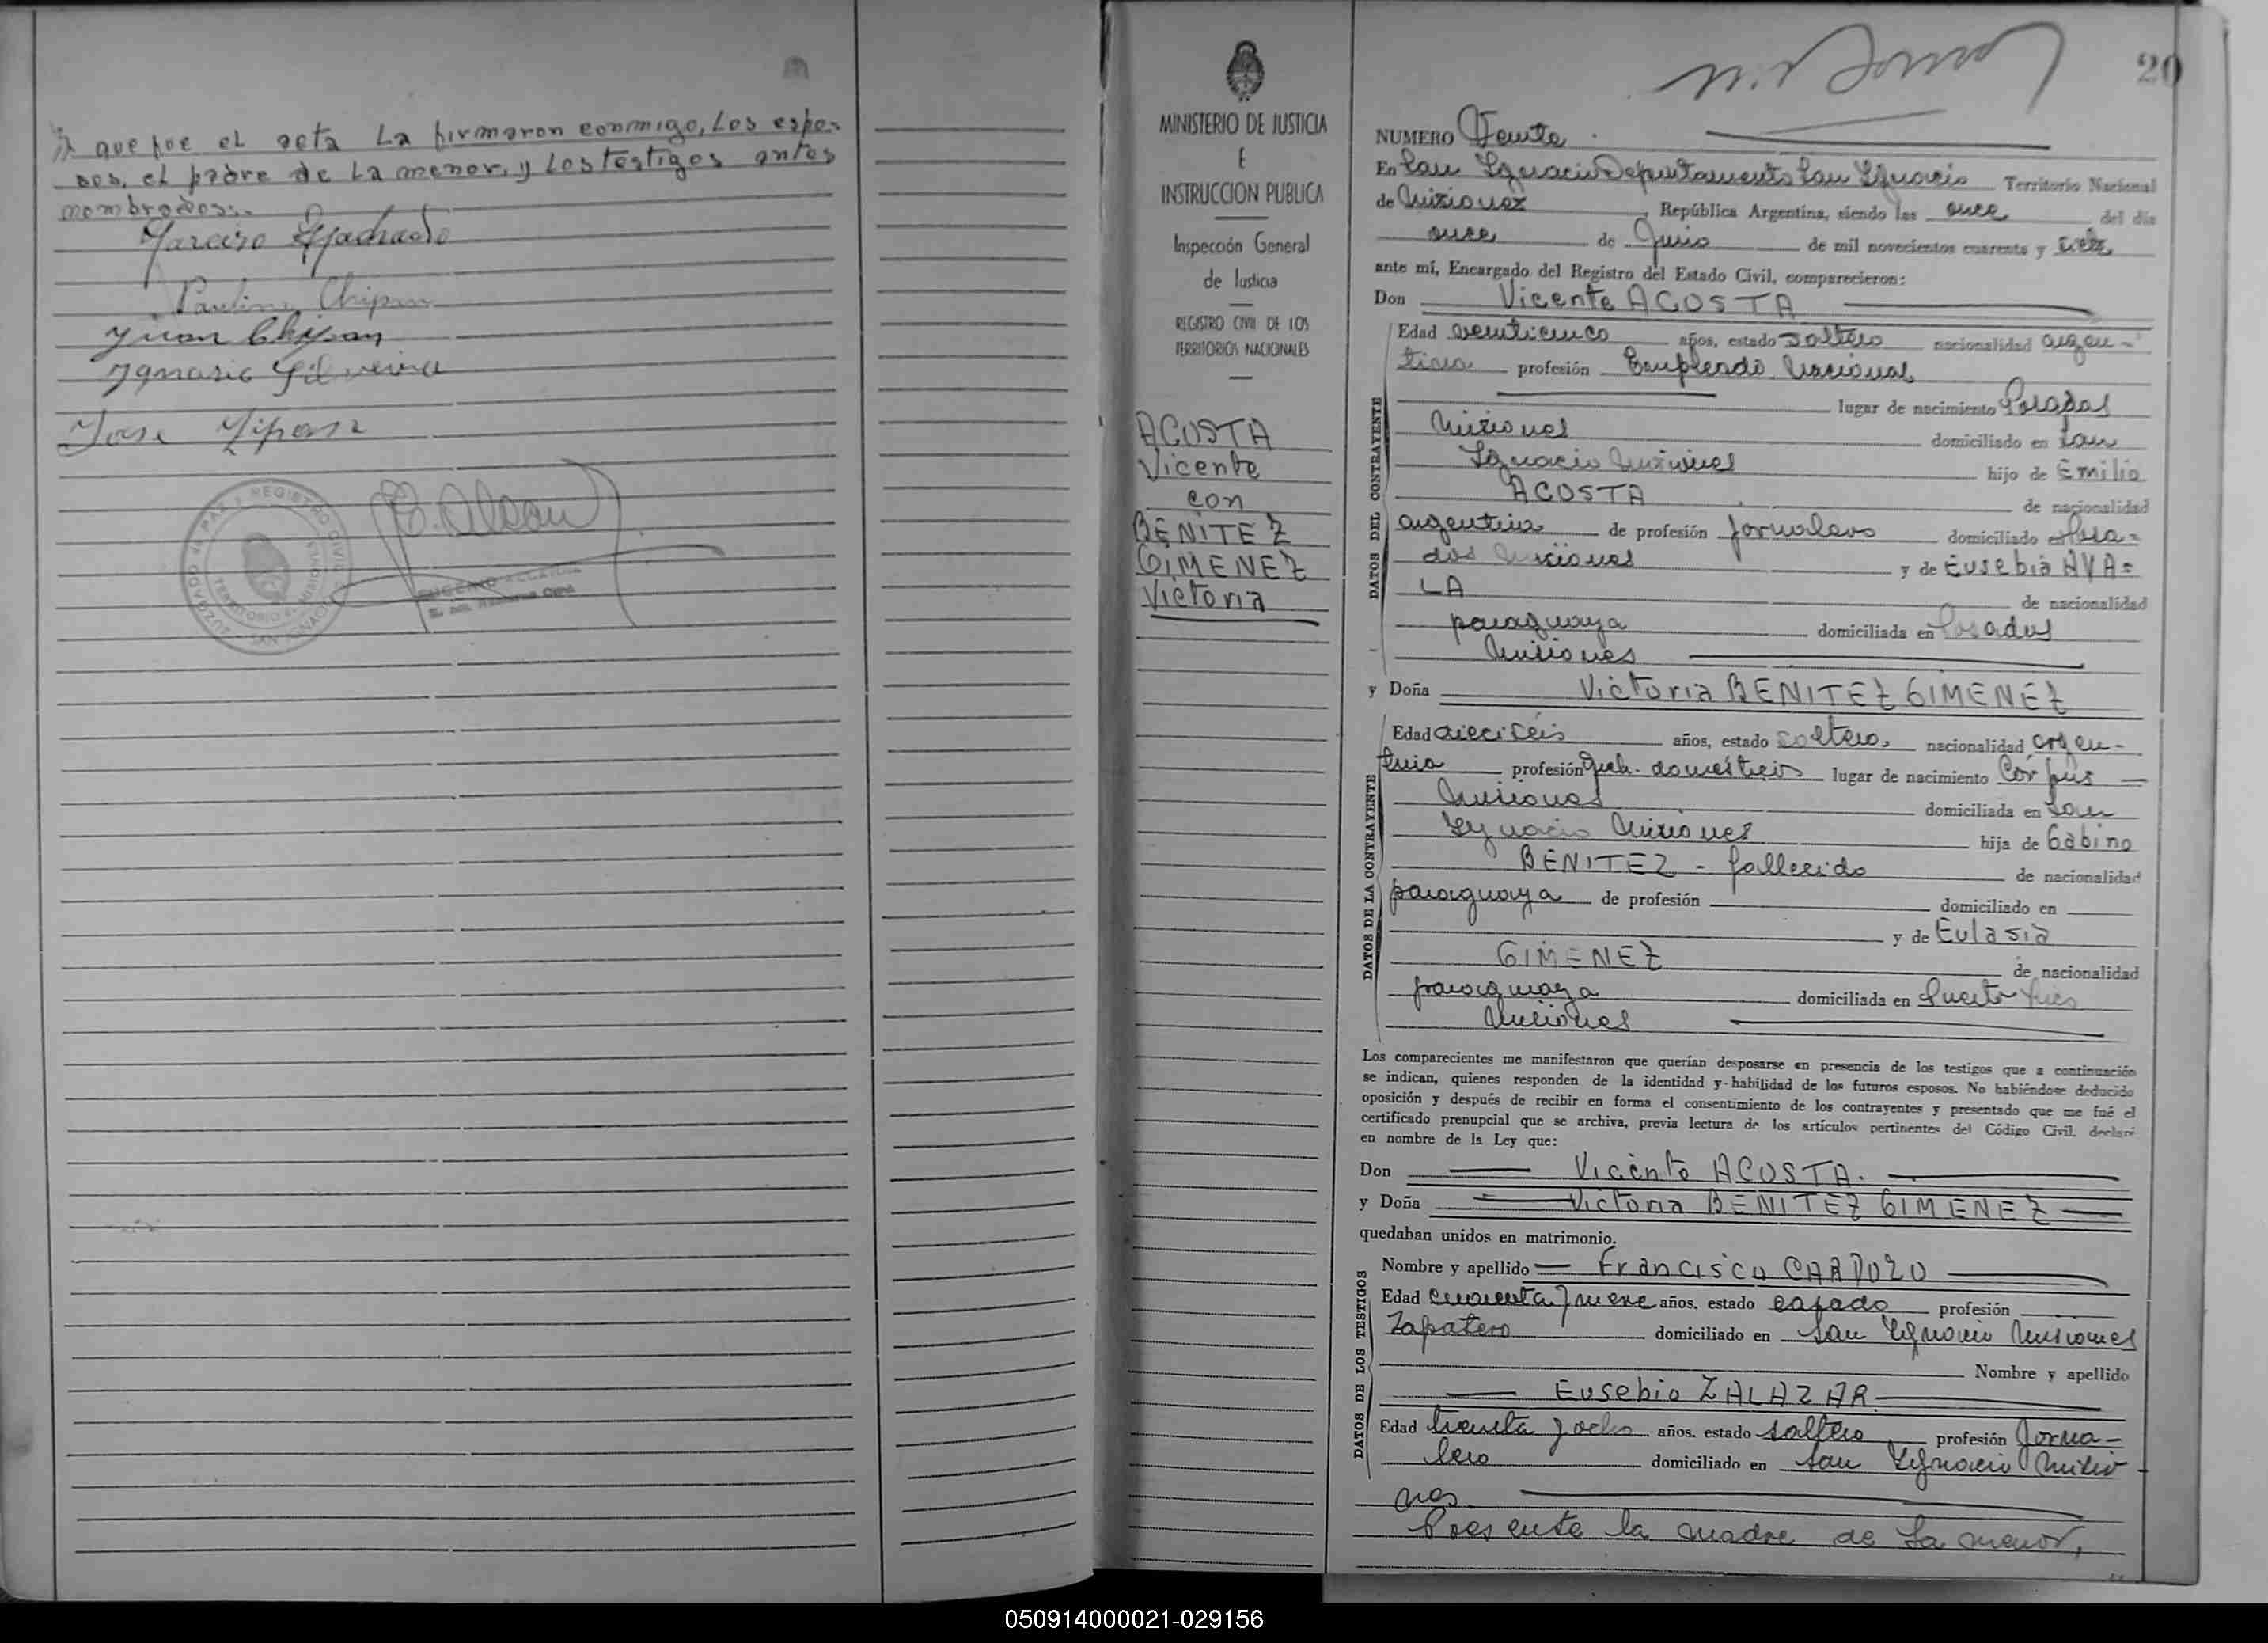 que fue el acta La firmaron conmigo, Los espo-
sos, el padre de La menor, y Los testigos antes
nombrados.-
Narciso Machado
Paulina Chipan
Juan Chipan
Ignasio Silveira
Jose
JUZGADO de PAZ y REGISTRO CIVIL
TERRITORIO MISIONES
SAN IGNACIO
20
MINISTERIO DE JUSTICIA
E
INSTRUCCION PUBLICA
Inspección General
de Justicia
REGISTRO CIVIL DE LOS
TERRITORIOS NACIONALES
ACOSTA
Vicente
con
BENITEZ
GIMENEZ
Victoria
NUMERO Veinte
En San Ignacio Departamento San Ignacio Territorio Nacional
de Misiones, República Argentina, siendo las once del día
once de Junio de mil novecientos cuarenta y siete
ante mí, Encargado del Registro del Estado Civil, comparecieron:
Don Vicente ACOSTA
DATOS DEL CONTRAYENTE
Edad veinticinco años, estado soltero nacionalidad argen-
tina profesión Empleado Nacional
lugar de nacimiento Posadas
Misiones domiciliado en San
Ignacio Misiones hijo de Emilio
ACOSTA de nacionalidad
argentina de profesión Jornalero domiciliado en Posa=
das Misiones y de Eusebia AVA=
LA de nacionalidad
paraguaya domiciliada en Posadas
Misiones
y Doña Victoria BENITEZ GIMENEZ
DATOS DE LA CONTRAYENTE
Edad dieciseis años, estado soltera, nacionalidad argen-
tina profesión queh. domésticos lugar de nacimiento Corpus
Misiones domiciliada en San
Ignacio Misiones hija de Gabino
BENITEZ - fallecido de nacionalidad
paraguaya de profesión domiciliado en
y de Eulasia
GIMENEZ de nacionalidad
paraguaya domiciliada en Puerto
Misiones
Los comparecientes me manifestaron que querían desposarse en presencia de los testigos que a continuación
se indican, quienes responden de la identidad y habilidad de los futuros esposos. No habiéndose deducido
oposición y después de recibir en forma el consentimiento de los contrayentes y presentado que me fué el
certificado prenupcial que se archiva, previa lectura de los artículos pertinentes del Código Civil, declaré
en nombre de la Ley que:
Don Vicente ACOSTA.
y Doña Victoria BENITEZ GIMENEZ
quedaban unidos en matrimonio.
DATOS DE LOS TESTIGOS
Nombre y apellido Francisco CARDOZO
Edad cuarenta y nueve años, estado casado profesión
Zapatero domiciliado en San Ignacio Misiones
Nombre y apellido
Eusebio ZALAZAR
Edad treinta y ocho años, estado soltero profesión Jorna-
lero domiciliado en San Ignacio Misio
nes.
Presente la madre de la menor,
050914000021-029156